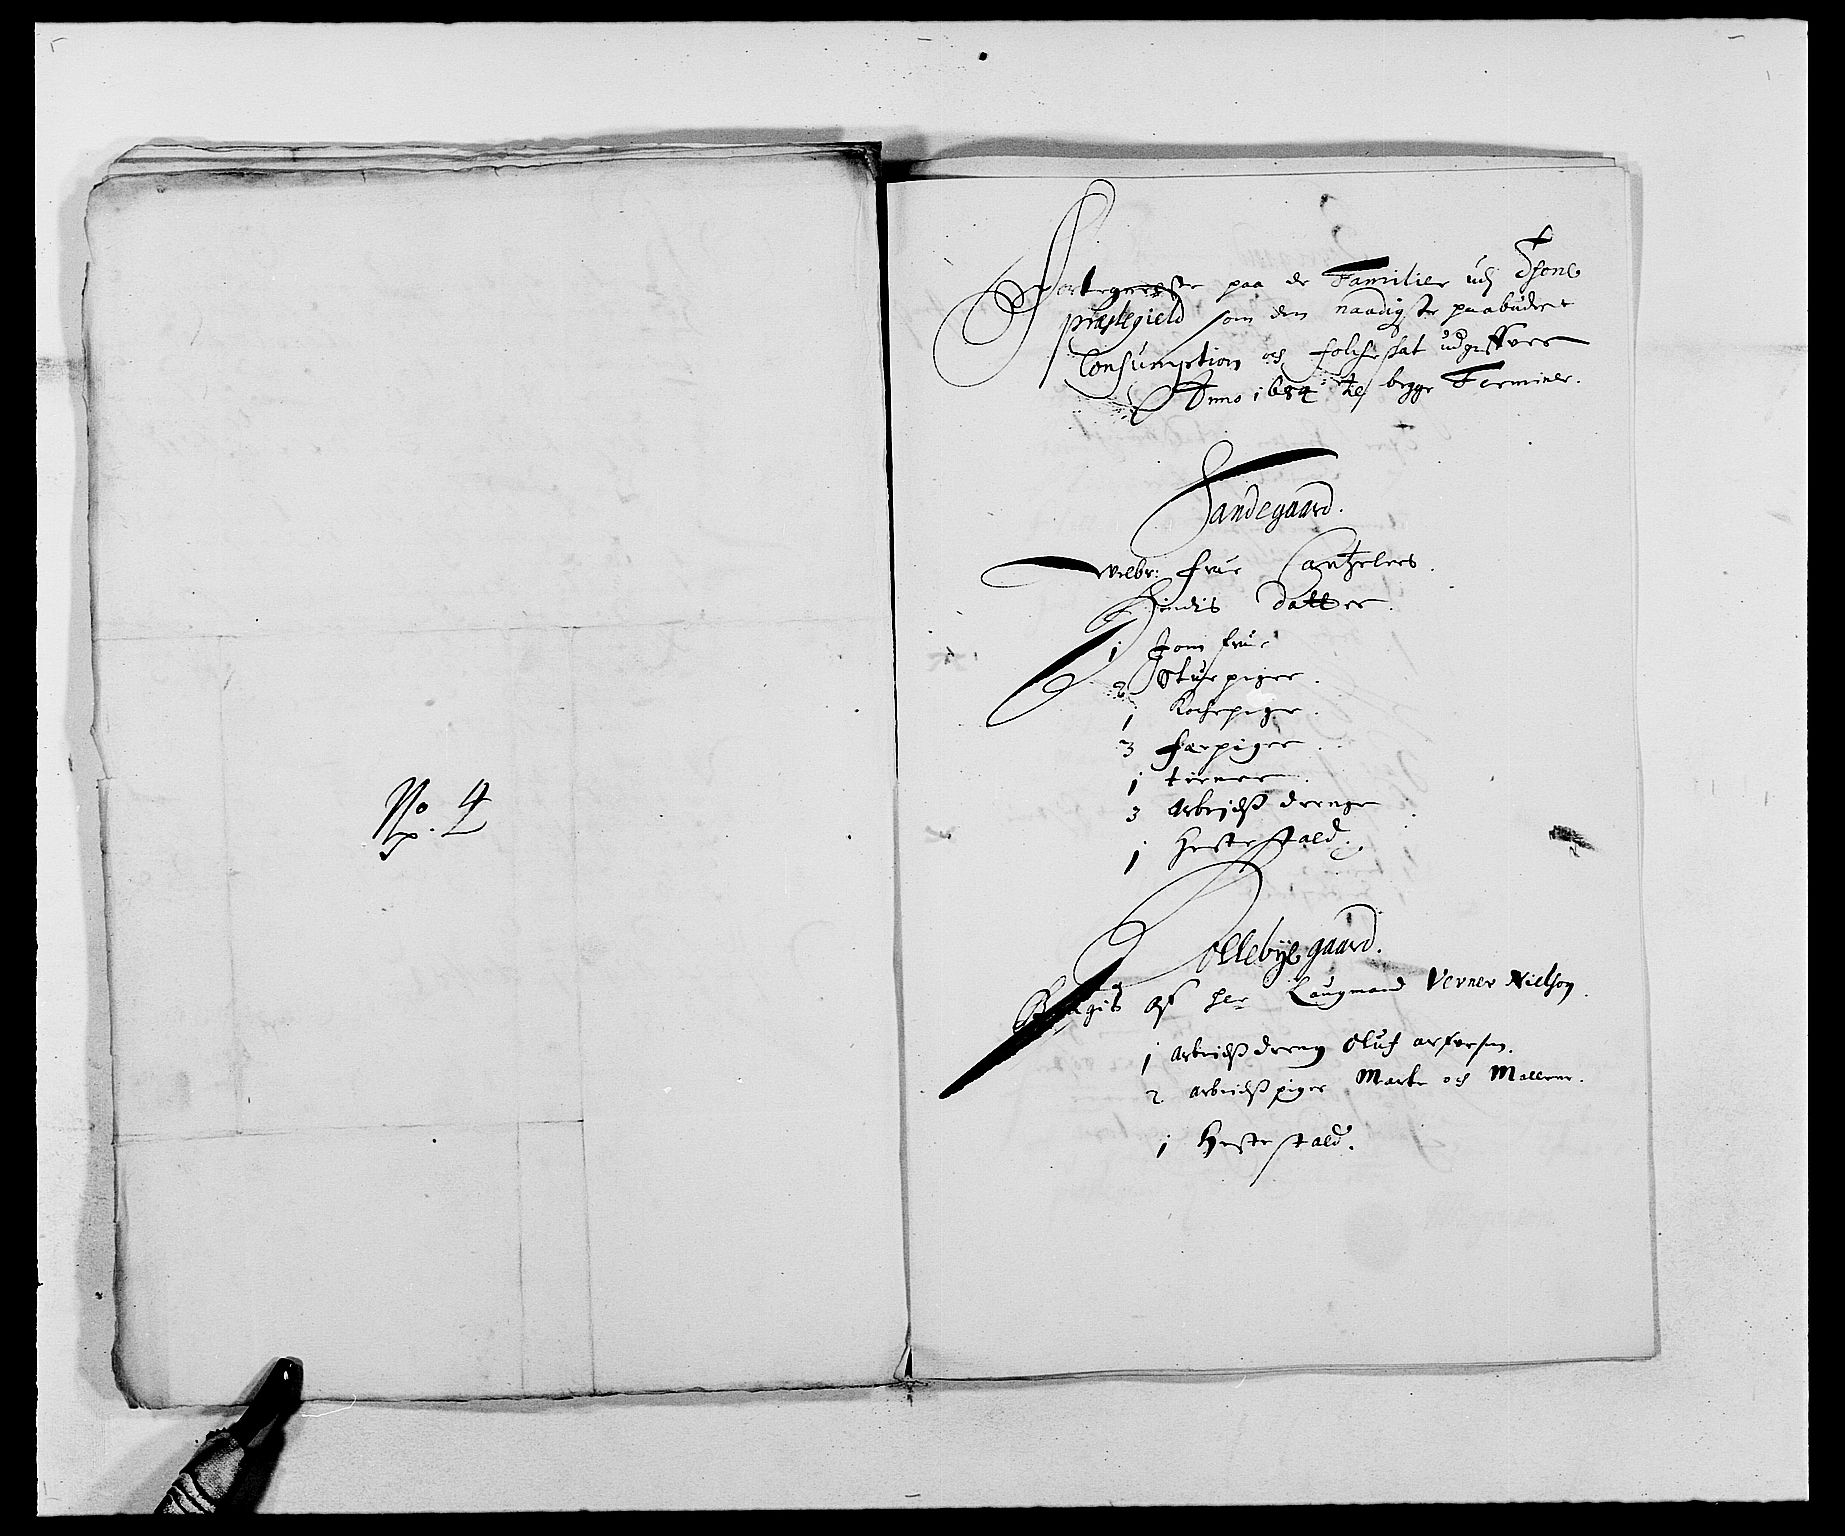 No. 4
Fortegnelse paa de Familier udj Thone
præstegield som den naadigste paabudne
Consumption och folcheskat udgiffver
Anno 1684 til begge Terminer.
Sandegaard.
Velbr: Frue Cantzelers.
Hindis Datter.
1 Jomfrue
2 Stuepiger.
1 Kochepige.
3 farpiger.
1 terner.
3 Arbejdsdrenge
1 Hestestald.
Tollebyegaard.
Brugis af her Laugmand Verner Nielson.
1 Arbeidsdreng Oluf
2 arbeidspiger Marte och
1 Hestestald.